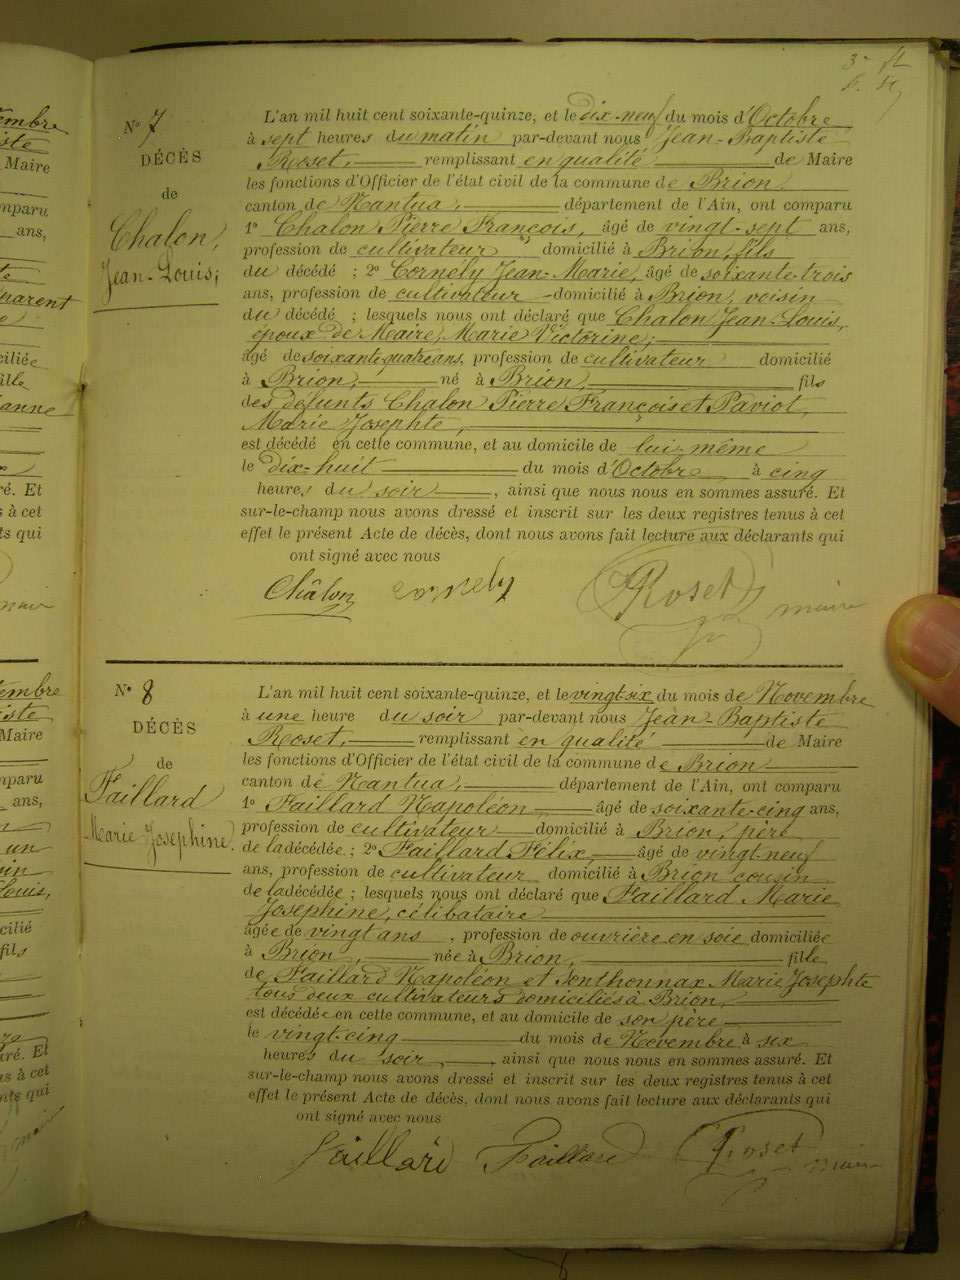 N° 7
DÉCÈS
de
Chalon,
Jean-Louis;
L'an mil huit cent soixante-quinze, et le dix-neuf du mois d'Octobre
à sept heures du matin par-devant nous Jean-Baptiste
Roset, remplissant en qualité de Maire
les fonctions d'Officier de l'état civil de la commune de Brion,
canton de Nantua, département de l'Ain, ont comparu
1° Chalon Pierre François, âgé de vingt-sept ans,
profession de cultivateur domicilié à Brion, fils
du décédé ; 2° Cornély Jean-Marie, âgé de soixante-trois
ans, profession de cultivateur domicilié à Brion, voisin
du décédé ; lesquels nous ont déclaré que Chalon Jean-Louis,
époux de Maire, Marie Victorine,
âgé de soixante-quatre ans, profession de cultivateur domicilié
à Brion, né à Brion, fils
des défunts Chalon Pierre François et Paviot,
Marie Josephte,
est décédé en cette commune, et au domicile de lui-même
le dix-huit du mois d'Octobre à cinq
heures du soir, ainsi que nous nous en sommes assuré. Et
sur-le-champ nous avons dressé et inscrit sur les deux registres tenus à cet
effet le présent Acte de décès, dont nous avons fait lecture aux déclarants qui
ont signé avec nous
Châlon cornely Roset maire
N° 8
DÉCÈS
de
Faillard
Marie Josephine.
L'an mil huit cent soixante-quinze, et le vingt-six du mois de Novembre
à une heure du soir par-devant nous Jean-Baptiste
Roset, remplissant en qualité de Maire
les fonctions d'Officier de l'état civil de la commune de Brion
canton de Nantua, département de l'Ain, ont comparu
1° Faillard Napoléon âgé de soixante-cinq ans,
profession de cultivateur domicilié à Brion, père
de la décédée ; 2° Faillard Félix, âgé de vingt-neuf
ans, profession de cultivateur domicilié à Brion cousin
de la décédée ; lesquels nous ont déclaré que Faillard Marie
Josephine, célibataire
âgée de vingt ans, profession de ouvrière en soie domiciliée
à Brion, née à Brion, fille
de Faillard Napoléon et Sonthonnax Marie Josephte
tous deux cultivateurs domiciliés à Brion,
est décédée en cette commune, et au domicile de son père
le vingt-cinq du mois de Novembre à six
heures du soir, ainsi que nous nous en sommes assuré. Et
sur-le-champ nous avons dressé et inscrit sur les deux registres tenus à cet
effet le présent Acte de décès, dont nous avons fait lecture aux déclarants qui
ont signé avec nous
Faillard Faillard Roset maire